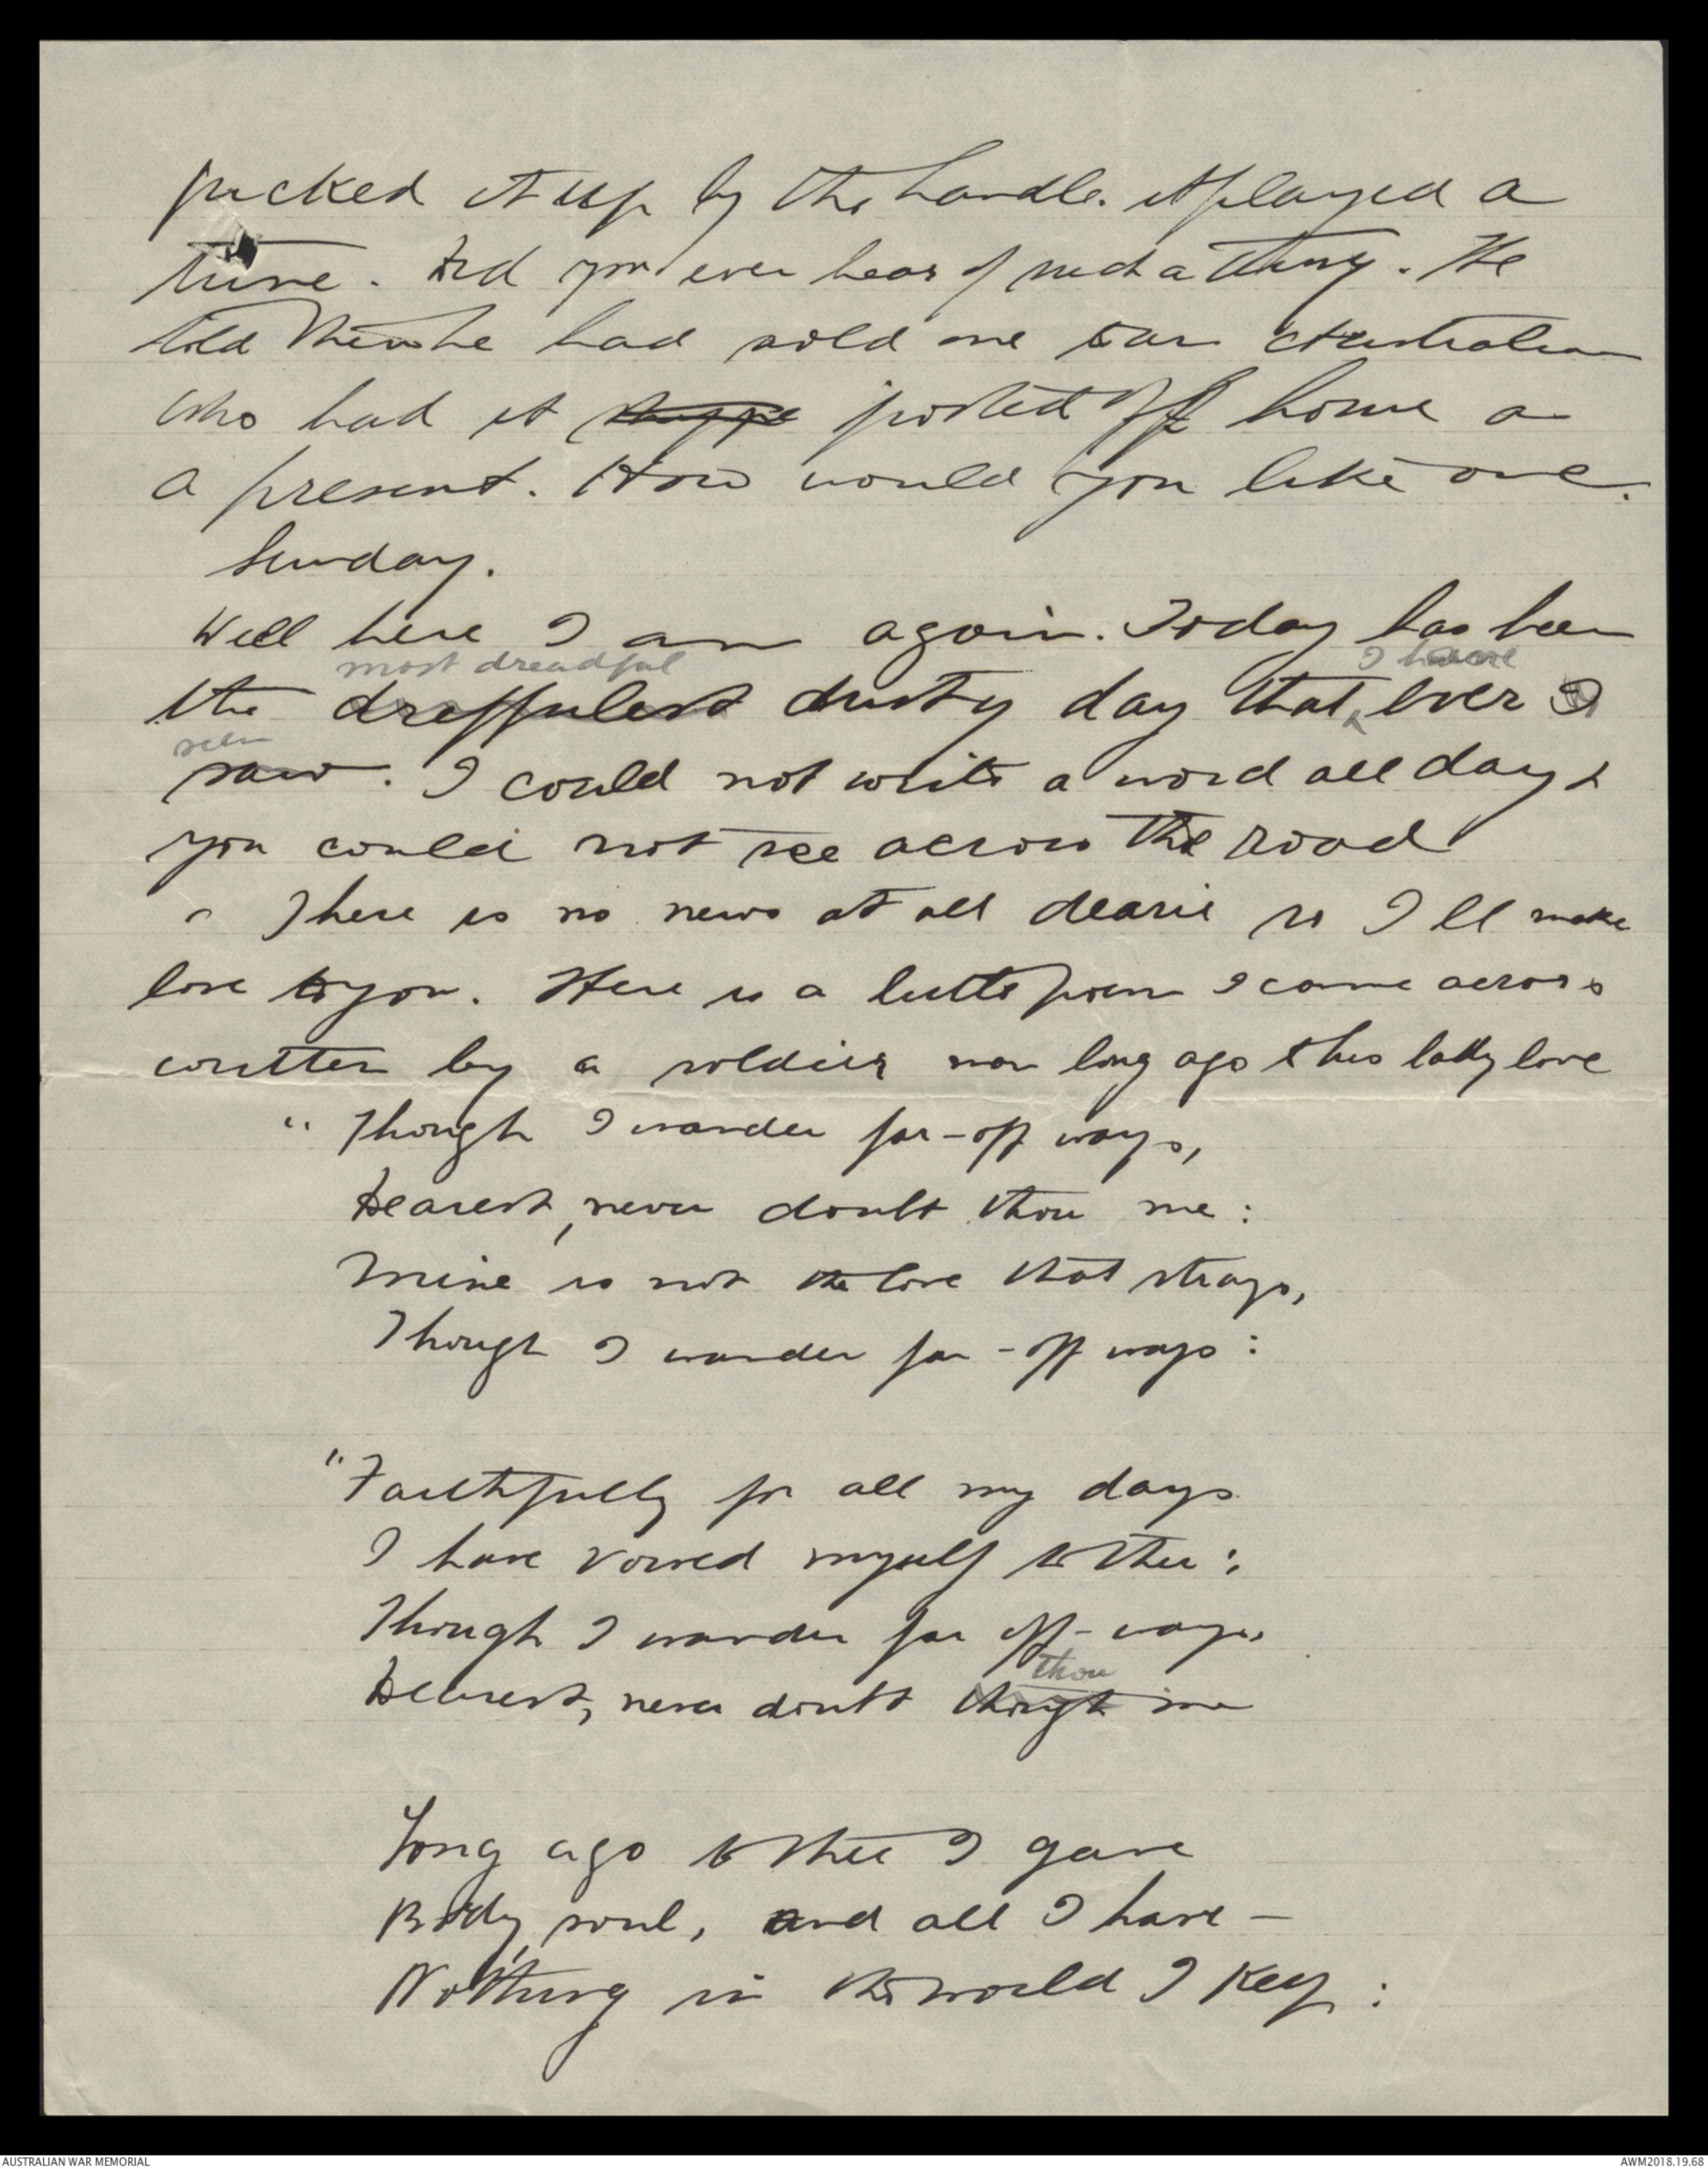 picked it up by the handle. it played a
tune. Did you ever hear of such a thing. He
told them he had sold one to an Australian
who had it posted off home a
a present. How would you like one.
Sunday.
Well here I am again. Today has been
most dreadful I have
the dreffulest dusty day that ever I
seen
saw. I could not write a word all day &
you could not see across the road
There is no news at all dearie so I'll make
love to you. Here is a little poem I came across
written by a soldier now long ago t his lady love
"Though I wander far-off ways,
Dearest, never doubt thou me:
Mine is not the love that strays,
Though I wander far-off ways:
"Faithfully for all my days
I have vowed myself to thee:
Though I wander far off-ways,
thou
Dearest, never doubt though me
Long ago to thee I gave
Body, soul, and all I have—
Nothing in the world I keep:
AUSTRALIAN WAR MEMORIAL
AWM2018.19.68